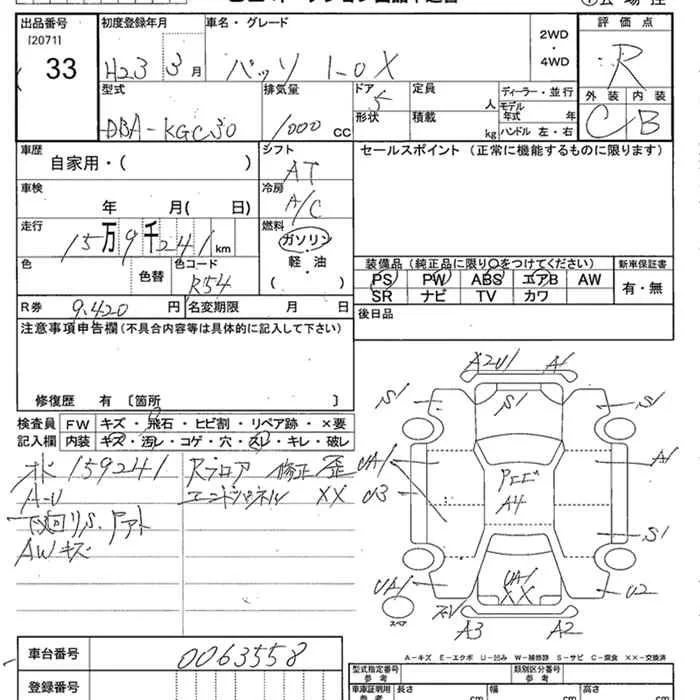 出品番号
[2071]
33
初度登録年月
H23 3月
車名・グレード
パッソ 1.0X
2WD
・
4WD
評価点
R
外装 内装
C B
型式
DBA-KGC30
排気量
1000 cc
ドア
5
形状
定員
人
積載
kg
ディーラー・並行
モデル
年式 年
ハンドル 左・右
車歴
自家用・( )
車検
年 月( 日)
走行
15万9千241km
色
色替
色コード
R54
シフト
AT
冷房
A/C
燃料
ガソリン
・
軽・油
( )
R券 9,420 円
名変期限 月 日
セールスポイント (正常に機能するものに限ります)
装備品(純正品に限り〇をつけてください)
PS PW ABS エアB AW
SR ナビ TV カワ
新車保証書
有・無
後日品
注意事項申告欄(不具合内容等は具体的に記入して下さい)
修復歴 有 〔箇所 〕
検査員
記入欄
FW キズ・飛石・ヒビ割・リペア跡・×要
内装 キズ・汚レ・コゲ・穴・スレ・キレ・破レ
159241
A-U
下廻りS.
AWキズ
Rフロア 修正 歪
エンドパネル XX
A2U1 A1
S1 S1 S1
UA1 A1
U3
A4
S1
UA1 UA1 U2
XX
スペア
A3 A2
A-キズ E-エクボ U-凹み W-補修跡 S-サビ C-腐食 ××-交換済
車台番号 0063558
登録番号
型式指定番号
類別区分番号
車庫証明用
参考
長さ cm
幅 cm
高さ cm